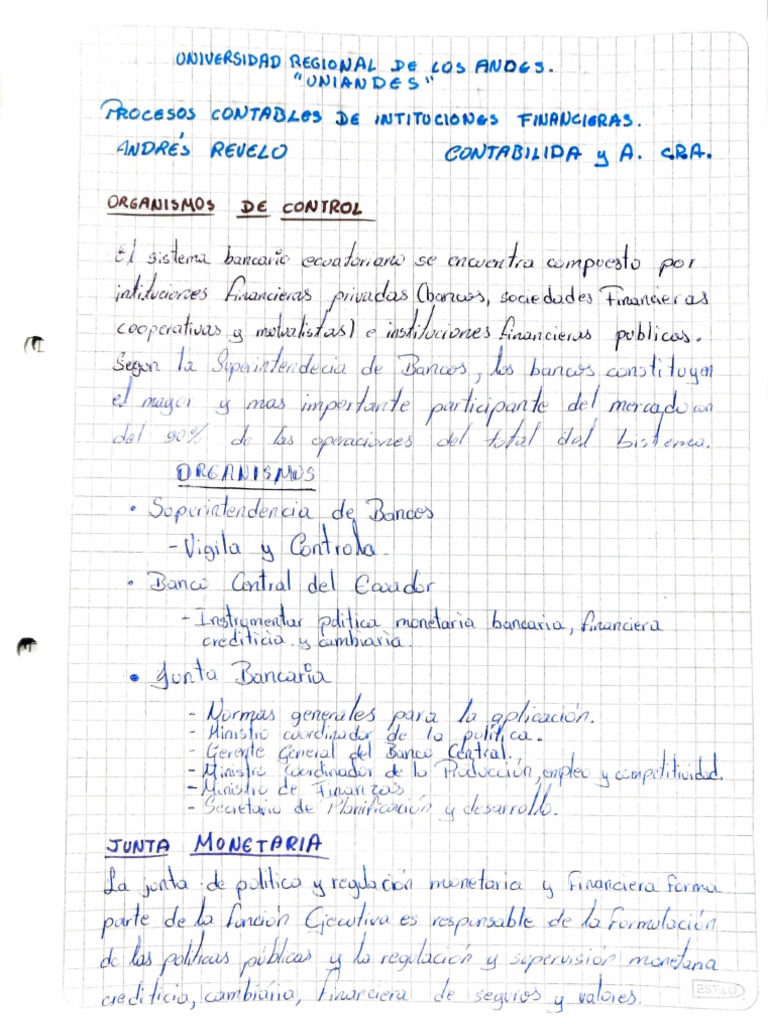 UNIVERSIDAD REGIONAL DE LOS ANDES.
"UNIANDES"
PROCESOS CONTABLES DE INTITUCIONES FINANCIERAS.
ANDRÉS REVELO CONTABILIDA y A. CRA.
ORGANISMOS DE CONTROL
El sistema bancario ecuatoriano se encuentra compuesto por
intituciones financieras privadas (bancos, sociedades Financieras
cooperativas y mutualistas) e instituciones financieras publicas.
Segun la Superintendecia de Bancos, los bancos constituyen
el mayor y mas importante participante del mercado con
del 90% de las operaciones del total del sistema.
ORGANISMOS
• Superintendencia de Bancos
- Vigila y Controla.
• Banco Central del Ecuador
- Instrumentar politica monetaria bancaria, financiera
crediticia y cambiaria.
• Junta Bancaria
- Normas generales para la aplicación.
- Ministro coordinador de la politica.
- Gerente General del Banco Central.
- Ministro Coordinador de la Producción, empleo y competitividad.
- Ministro de Finanzas
- Secretario de Planificación y desarrollo.
JUNTA MONETARIA
La junta de politica y regulación monetaria y Financiera forma
parte de la función Ejecutiva es responsable de la formulación
de las politicas públicas y la regulación y supervisión monetaria
crediticia, cambiaria, financiera de seguros y valores.
ESTILO